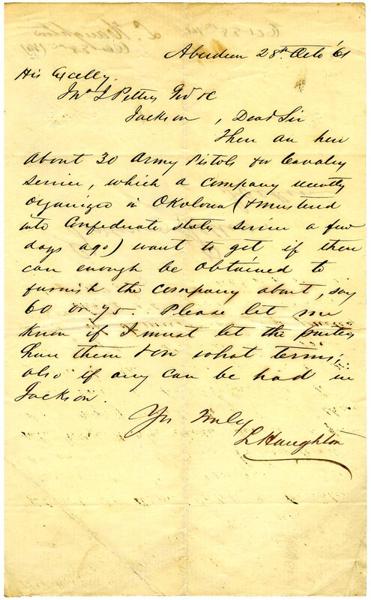 Aberdeen 28th Octo '61
His Excelly.
Jno J Pettus Gov &c
Jackson, Dear Sir
There are here
about 30 Army Pistols for Cavalry
service, which a company recently
organized in Okolona (& mustered
into Confederate states service a few
days ago) want to get if there
can enough be obtained to
furnish the company about, say
60 or 70. Please let me
know if I must let the parties
have them & on what terms,
also if any can be had in
Jackson.
Yrs Truly
L Haughton